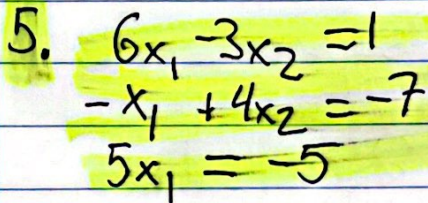 5. 6x₁ -3x₂ = 1
-x₁ + 4x₂ = -7
5x₁ = -5